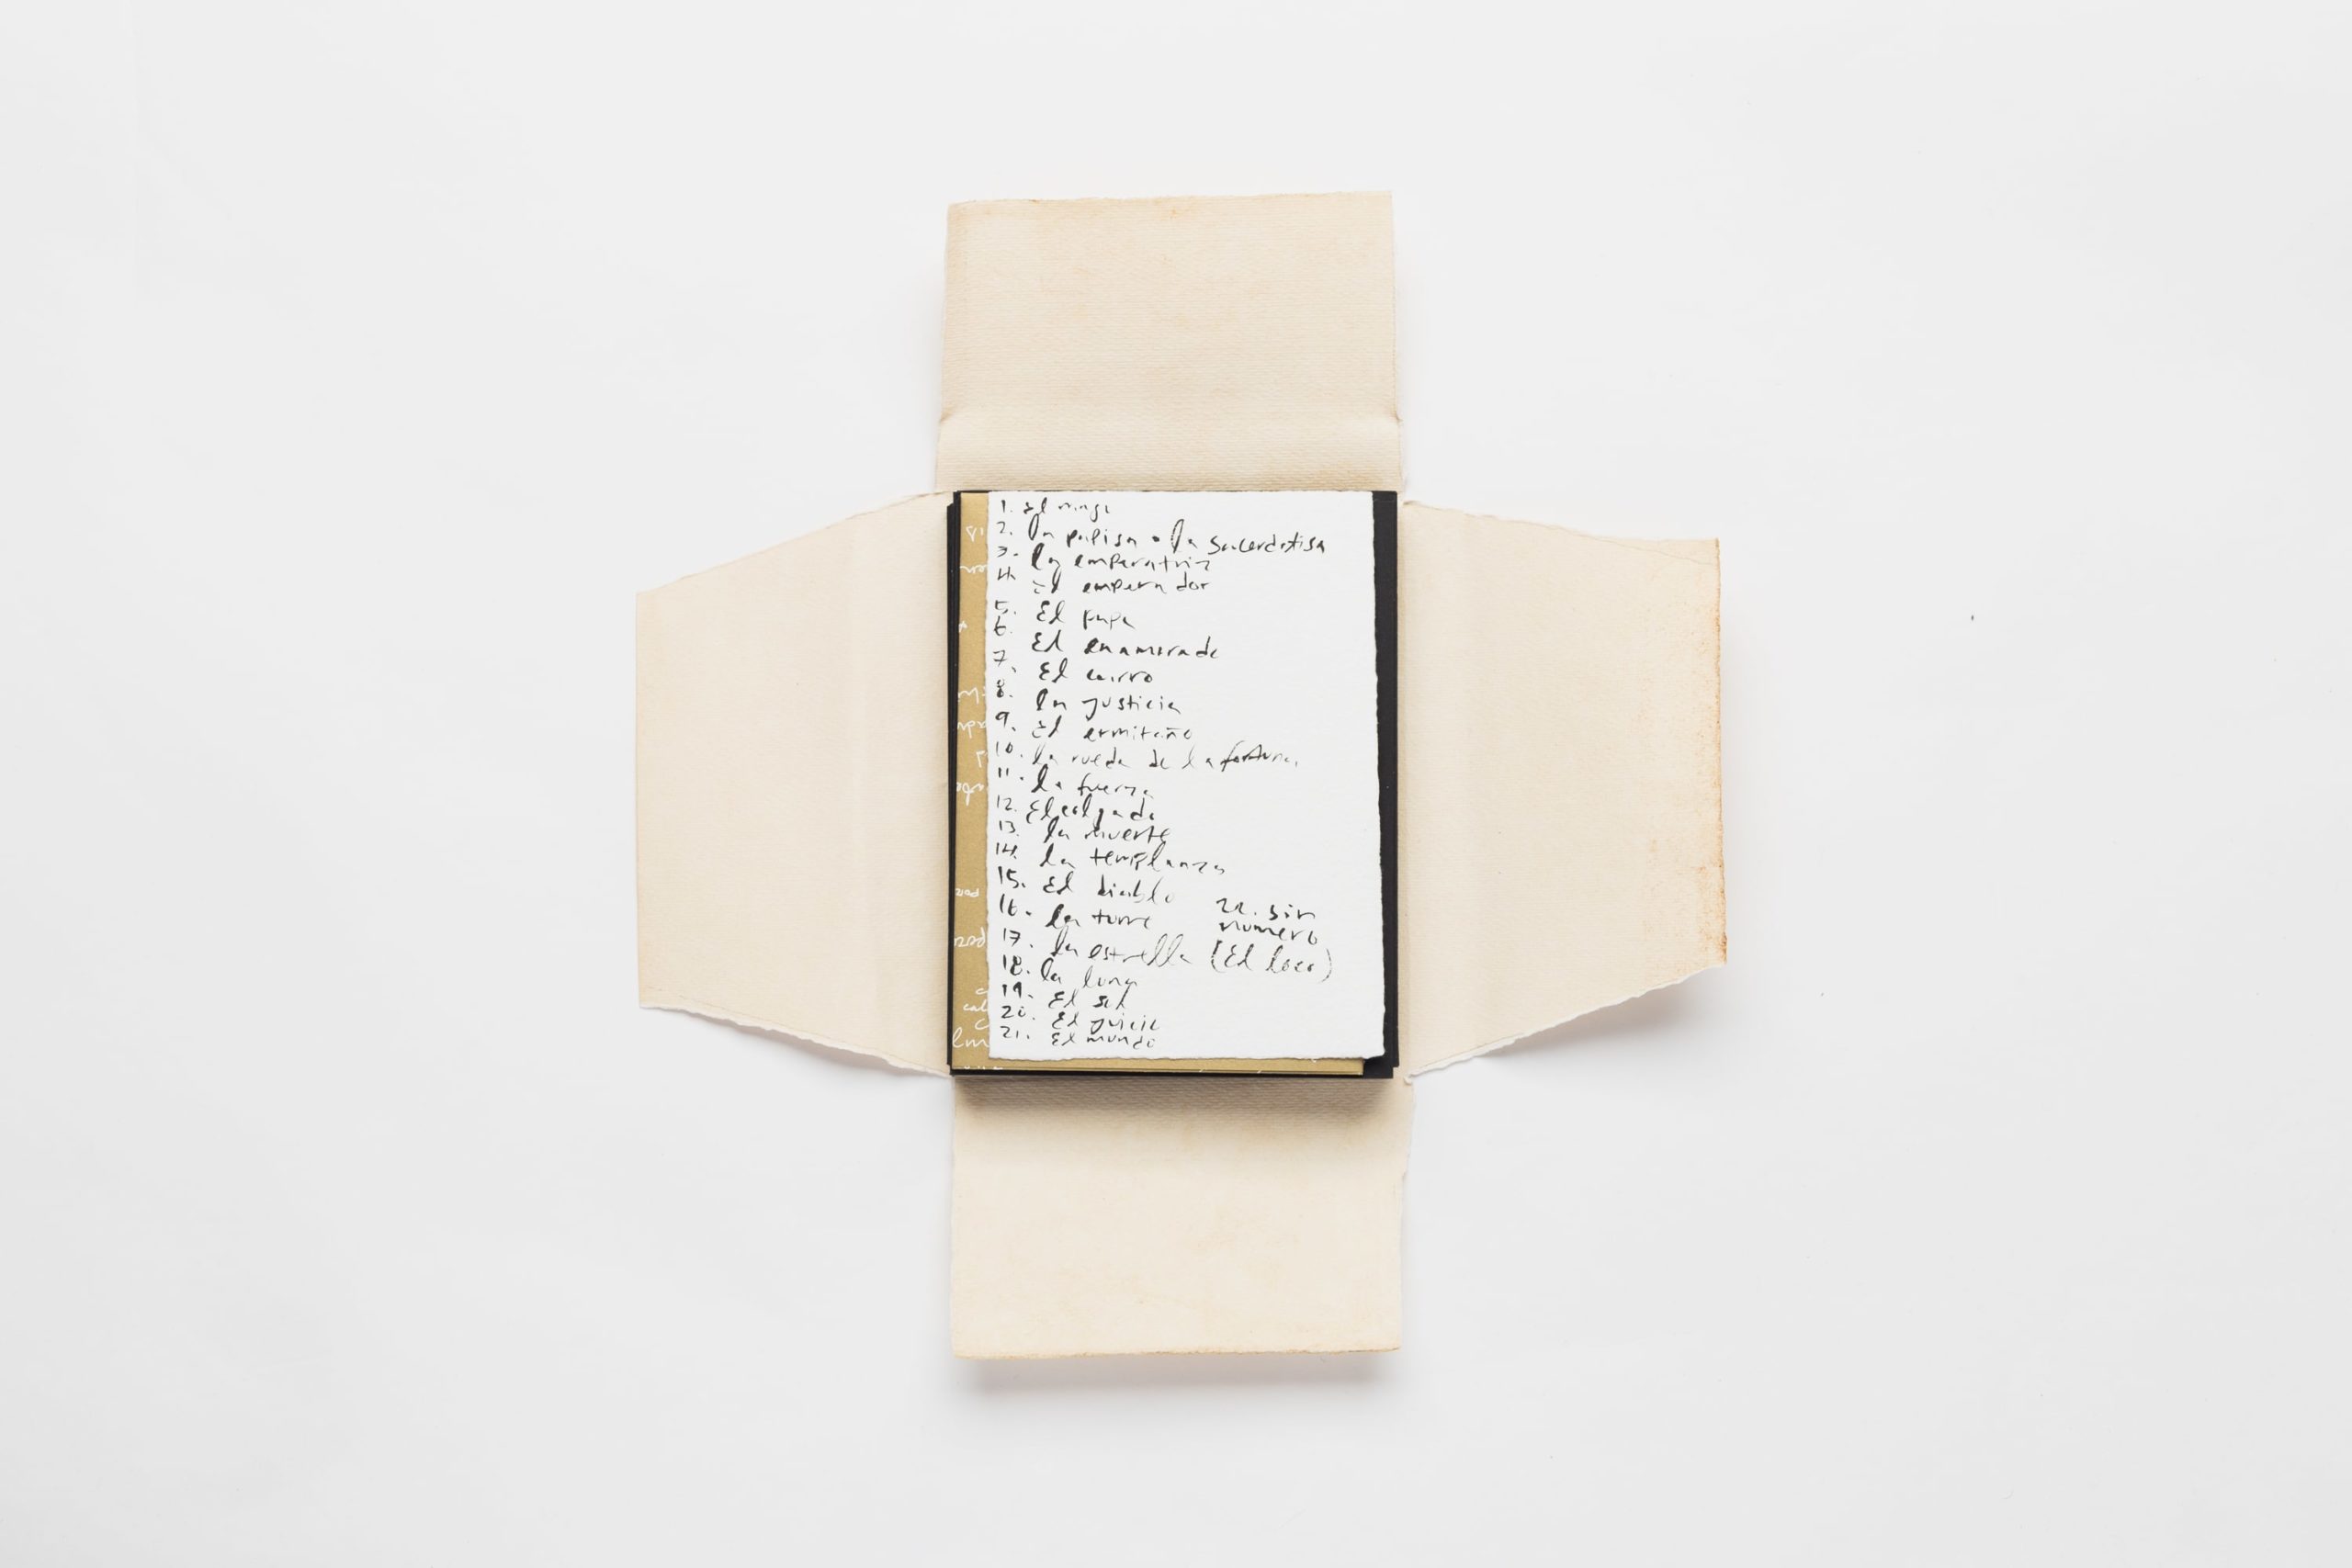 1. El mago
2. la papisa o la sacerdotisa
3. la emperatriz
4. El emperador
5. El papa
6. El enamorado
7. El carro
8. la justicia
9. El ermitaño
10. la rueda de la fortuna
11. la fuerza
12. El colgado
13. la muerte
14. la templanza
15. El diablo
16. la torre
17. la estrella
18. la luna
19. El sol
20. El juicio
21. El mundo
22. sin
numero
(El loco)